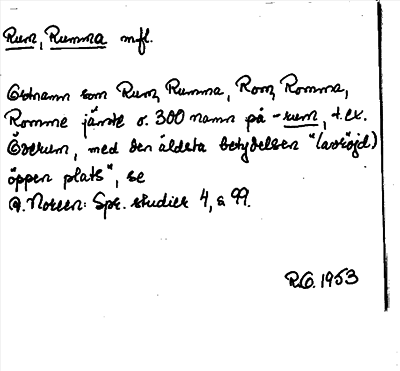 Rum, Rumma mfl.
Ortnamn som Rum, Rumma, Rom, Romma,
Romme jämte o. 300 namn på -rum, t.ex.
Överum, med den äldsta betydelsen "(avröjd)
öppen plats", se
A. Noreen: Spr. studier 4, s 99.
R.O. 1953